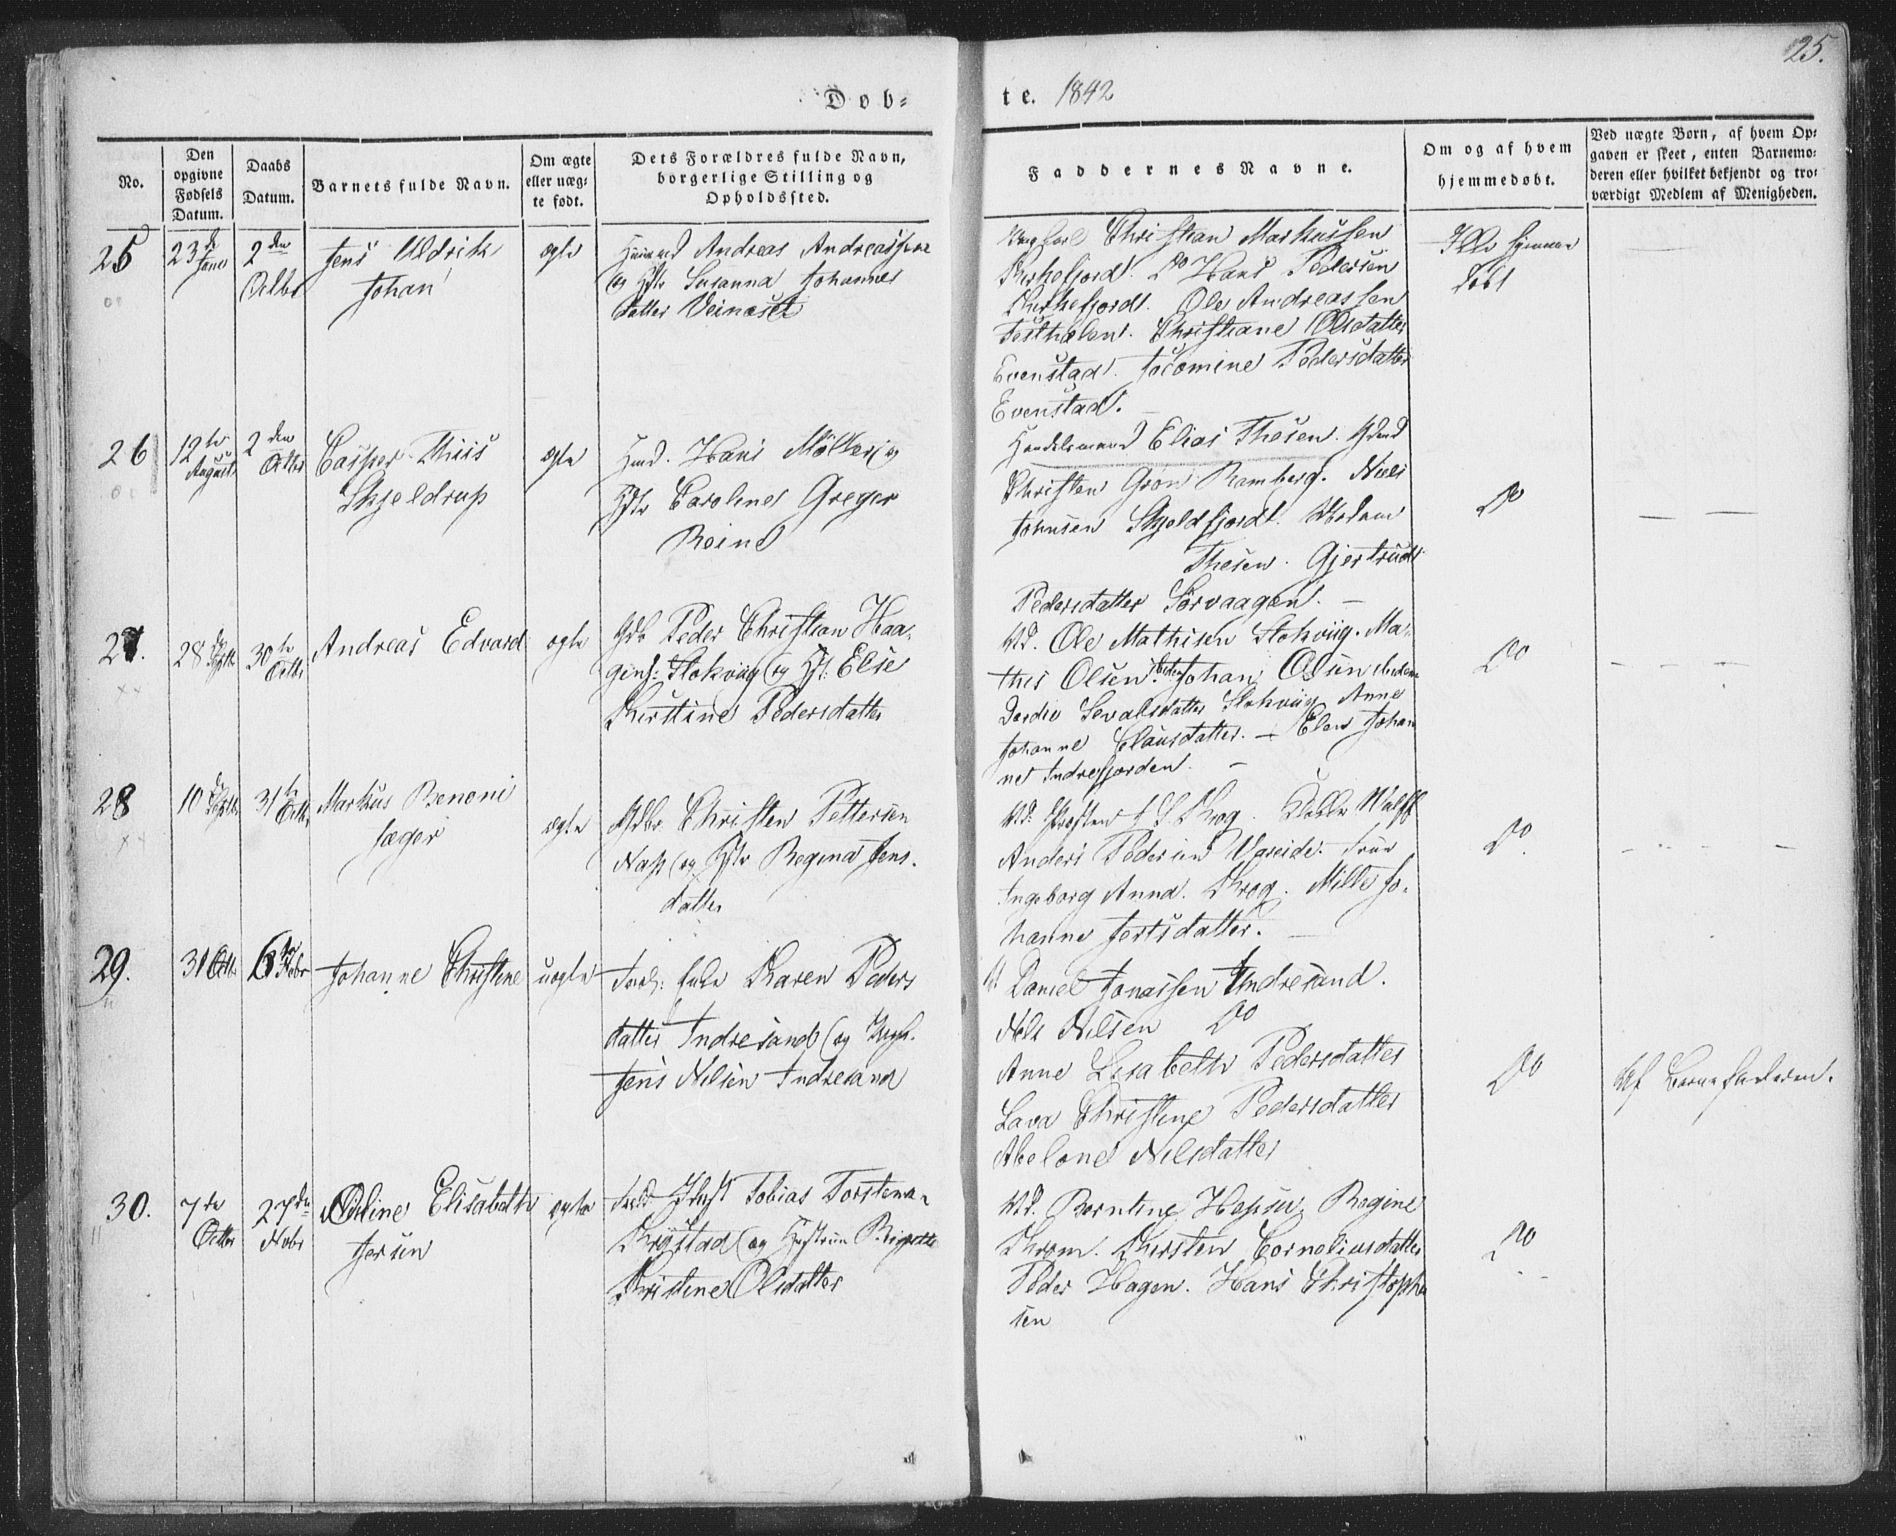 25.
Dob=
te. 1842
No.
Den opgivne Fødsels Datum.
Daabs Datum.
Barnets fulde Navn.
Om ægte eller uægte født.
Dets Forældres fulde Navn, borgerlige Stilling og Opholdssted.
Faddernes Navne.
Om og af hvem hjemmedøbt.
Ved uægte Børn, af hvem Opgaven er skeet, enten Barnemoderen eller hvilket bekjendt og troværdigt Medlem af Menigheden.
25
23 de
2 den
Octbr
Jens Uldrik
Johan
ægte
Andreas Andreassen
og Susanna Johannes
datter Veinæset
Christian Markussen
Kirkefjord. Do Hans Pedersen
Kirkefjord. Ole Andreassen
Christiane Olsdatter
Evenstad. Jacomine Pedersdatter
Evenstad.
Ikke hjemme
døbt
26
12 te
August
2 den
Octbr
Casper Thiis
Skjeldrup
ægte
Hmd. Hans Møller og
Caroline Greger
Reine
Handelsmand Elias Thesen.
Christen Grøn Ramberg. Niels
Johnsen Skjeldfjord. Madam
Thesen. Gjertrud
Pedersdatter Sørvaagen.
Do
27.
28 Septbr
30 te
Octbr
Andreas Edvard
ægte
Peder Christian Haa-
gens: Stokviig og Else
Kirstine Pedersdatter
Ole Mathisen Stokviig. Ma-
this Olsen. Johan Olsen
Sevalsdatter Stokviig Anne
Johanne Clausdatter. Elen Johan
ne Indrefjorden.
Do
28
10 Septbr
31 te
Octbr
Markus Benoni
Jæger
ægte
Christen Pettersen
Næss og Regina Jens-
datter
Krog. Wulff
Anders Pedersen Vareide. Frue
Ingeborg Anna Krog. Mille Jo-
hanne Jertsdatter.
Do
29.
31 Octbr
6 te Nobr
Johanne Christine
uægte
Karen Peders
datter Indresand og
Jens Nilsen Indresand
Daniel Jonassen Indresand.
Nils Nilsen Do
Anne Lisabeth Pedersdatter
Lava Christine Pedersdatter
Abelone Nilsdatter
Do
Af Barnefaderen.
30.
7 de
Octbr
27 de
Nobr
Adeline Elisabeth
Jersin
ægte
Tobias Torstens.
Krystad og Hustrue Birgitte
Kristine Olsdatter
Berntine Regine
Krom. Kirsten Corneliusdatter
Peder Hagen. Hans Christophe
sen
Do